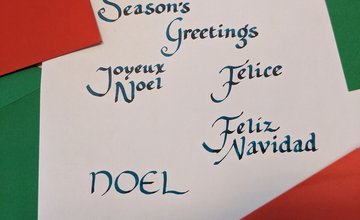 Season's
Greetings
Joyeux
Noel
Felice
Feliz
Navidad
NOEL